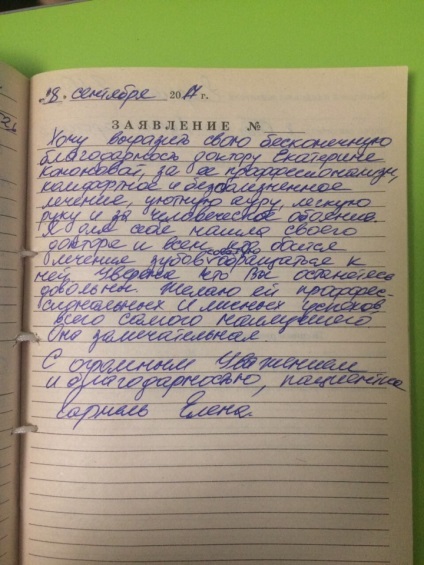 18. сентября 2017 г.
ЗАЯВЛЕНИЕ №
Хочу выразить свою бесконечную
благодарность доктору Екатерине
за ее профессионализм,
комфортное и безболезненное
лечение, уютную ауру, легкую
руку и за человеческое обояние.
Я для себе нашла своего
доктора и всем, кто боится
лечение зубов советую обращаться к
ней. Уверена что Вы останетесь
довольны. Желаю ей професс-
сиональных и личных успехов
всего самого наилучшего
Она замечательная.
С огромным Уважением
и благодарностью, пациентка
Елена.